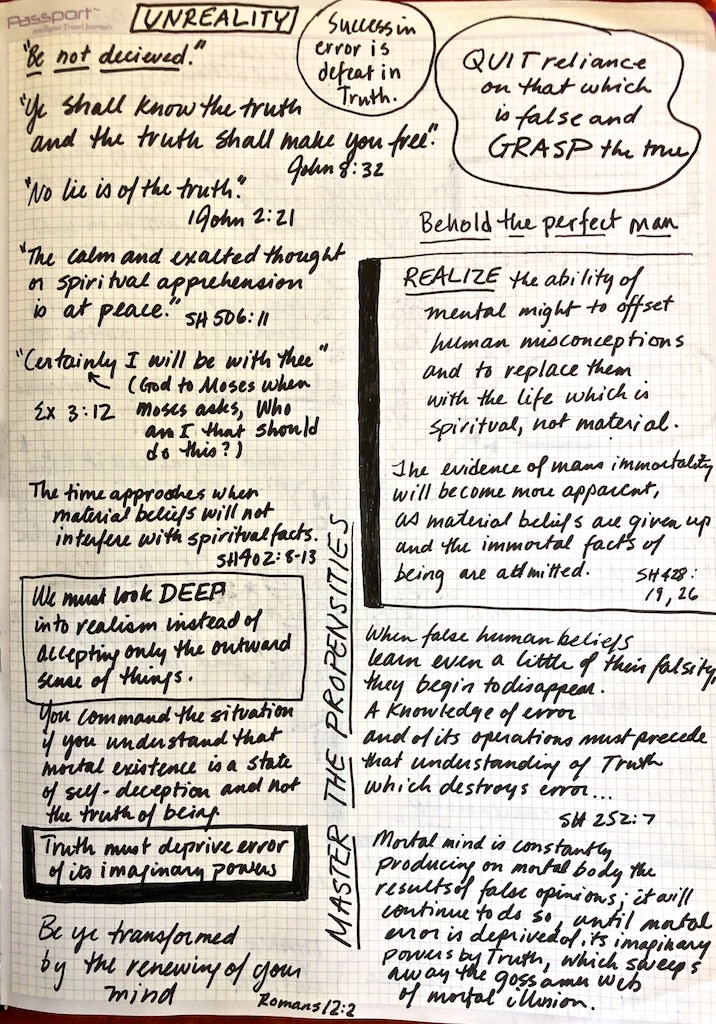 Passport™
Intelligent Travel Journals
UNREALITY
"Be not decieved."
"Ye shall know the truth
and the truth shall make you free".
John 8:32
"No lie is of the truth."
1 John 2:21
"The calm and exalted thought
or spiritual apprehension
is at peace."
SH 506:11
"Certainly I will be with thee"
(God to Moses when
Ex 3:12 Moses asks, Who
am I that should
do this?)
The time approches when
material beliefs will not
interfere with spiritual facts.
SH402:8-13
We must look DEEP
into realism instead of
accepting only the outward
sense of things.
You command the situation
if you understand that
mortal existence is a state
of self-deception and not
the truth of being.
Truth must deprive error
of its imaginary powers
Be ye transformed
by the renewing of your
mind
Romans 12:2
MASTER THE PROPENSITIES
Success in
error is
defeat in
Truth.
QUIT reliance
on that which
is false and
GRASP the true
Behold the perfect man
REALIZE the ability of
mental might to offset
human misconceptions
and to replace them
with the life which is
spiritual, not material.
The evidence of mans immortality
will become more apparent,
as material beliefs are given up
and the immortal facts of
being are admitted.
SH428:
19, 26
When false human beliefs
learn even a little of their falsity,
they begin to disappear.
A knowledge of error
and of its operations must precede
that understanding of Truth
which destroys error...
SH 252:7
Mortal mind is constantly
producing on mortal body the
results of false opinions; it will
continue to do so, until mortal
error is deprived of its imaginary
powers by Truth, which sweeps
away the gossamer web
of mortal illusion.